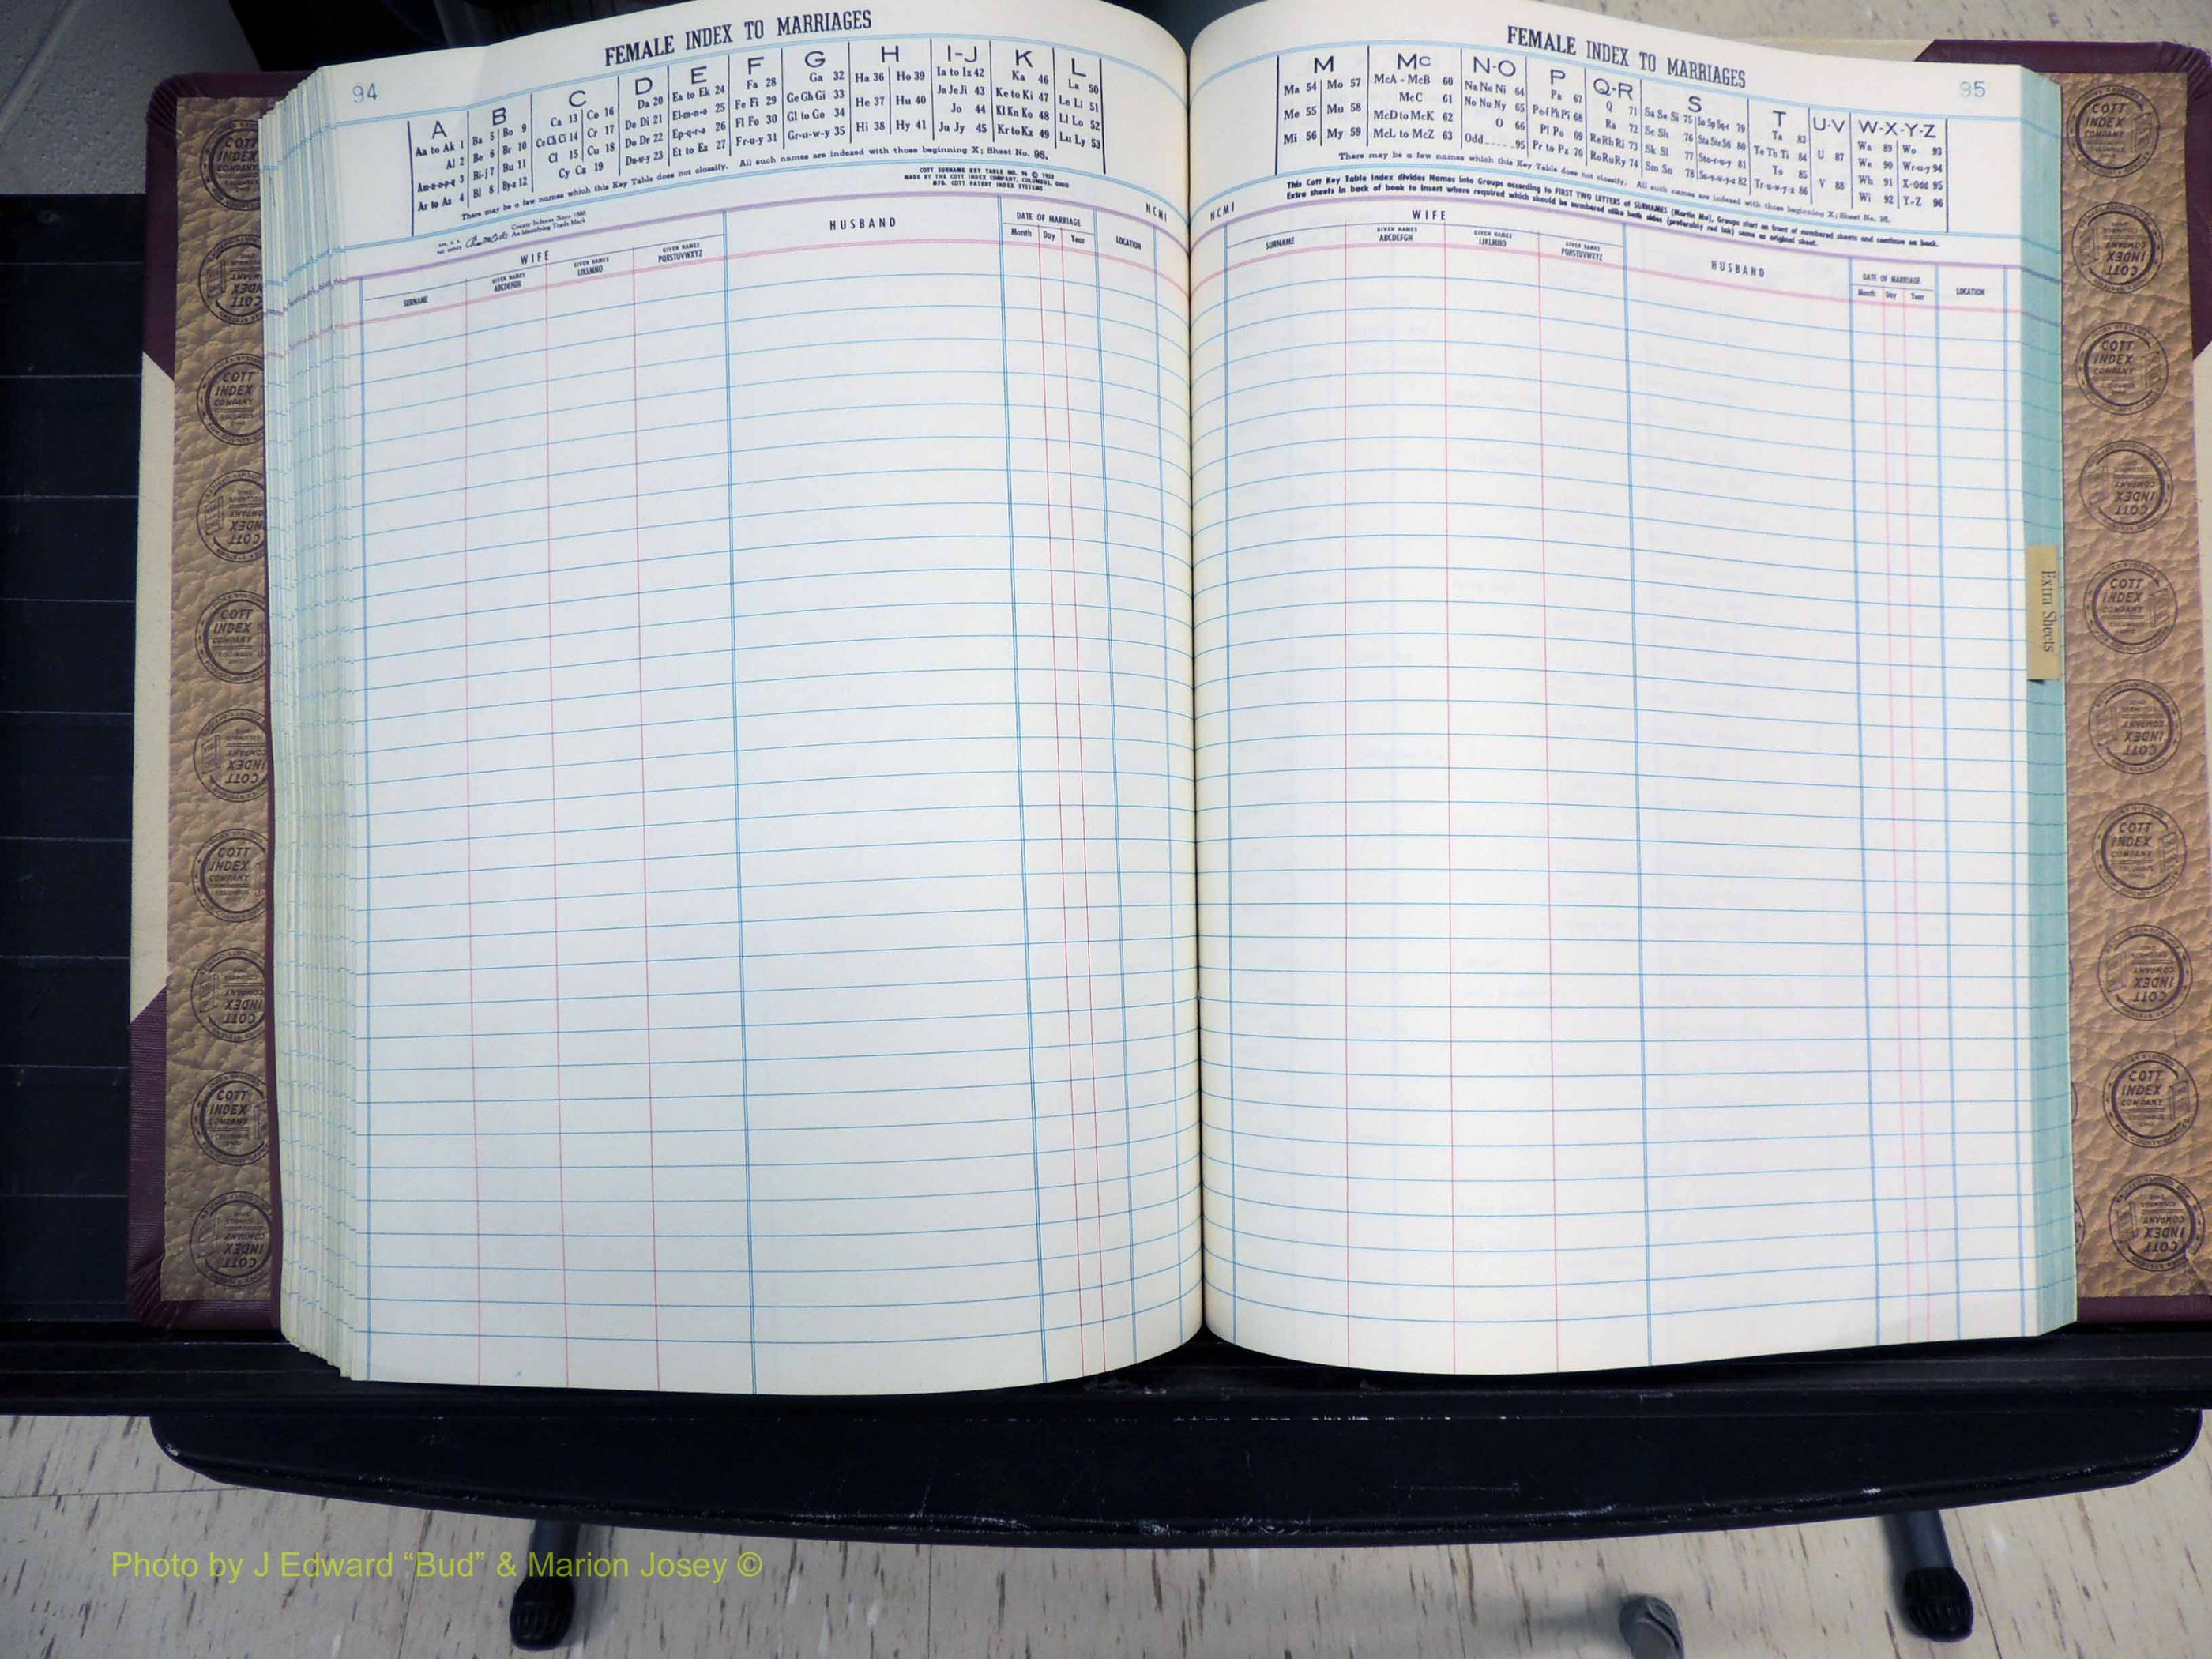 94
FEMALE INDEX TO MARRIAGES
A B C D E F G H I-J K L
Aa to Ak 1 Ba 5 Bo 9 Ca 13 Co 16 Da 20 Ea to Ek 24 Fa 28 Ga 32 Ha 36 Ho 39 Ia to Iz 42 Ka 46 La 50
Al 2 Be 6 Br 10 Ce Ch Ci 14 Cr 17 De Di 21 El-m-n-o 25 Fe Fi 29 Ge Gh Gi 33 He 37 Hu 40 Ja Je Ji 43 Ke to Ki 47 Le Li 51
Am-n-o-p-q 3 Bi-j 7 Bu 11 Cl 15 Cu 18 Do Dr 22 Ep-q-r-s 26 Fl Fo 30 Gl to Go 34 Hi 38 Hy 41 Jo 44 Kl Kn Ko 48 Ll Lo 52
Ar to Az 4 Bl 8 By-z 12 Cy Cz 19 Du-w-y 23 Et to Ez 27 Fr-u-y 31 Gr-u-w-y 35 Ju Jy 45 Kr to Kz 49 Lu Ly 53
There may be a few names which this Key Table does not classify. All such names are indexed with those beginning X; Sheet No. 95.
COTT SURNAME KEY TABLE NO.
MADE BY THE COTT INDEX COMPANY, COLUMBUS, OHIO
MFG. COTT PATENT INDEX SYSTEMS
County Indexes Since 1888
An Identifying Trade Mark
NCMI
WIFE HUSBAND DATE OF MARRIAGE LOCATION
SURNAME GIVEN NAMES ABCDEFGH GIVEN NAMES IJKLMNO GIVEN NAMES PQRSTUVWXYZ Month Day Year
FEMALE INDEX TO MARRIAGES
95
M Mc N-O P Q-R S T U-V W-X-Y-Z
Ma 54 Mo 57 McA - McB 60 Na Ne Ni 64 Pa 67 Q 71 Sa Se Si 75 79 Ta 83 U 87 Wa 89 Wo 93
Me 55 Mu 58 McC 61 No Nu Ny 65 Pe-f Ph Pi 68 Ra 72 Sc Sh 76 Sta Ste Sti 80 Te Th Ti 84 V 88 We 90 Wr-u-y 94
Mi 56 My 59 McD to McK 62 O 66 Pl Po 69 Re Rh Ri 73 Sk Sl 77 Sto-r-u-y 81 To 85 Wh 91 X-Odd 95
McL to McZ 63 Odd 95 Pr to Pz 70 Ro Ru Ry 74 Sm Sn 78 Su-v-w-y-z 82 Tr-u-w-y-z 86 Wi 92 Y-Z 96
There may be a few names which this Key Table does not classify. All such names are indexed with those beginning X; Sheet No. 95.
This Cott Key Table Index divides Names into Groups according to FIRST TWO LETTERS of SURNAMES (Martin Ma), Groups start on front of numbered sheets and continue on back.
Extra sheets in back of book to insert where required which should be numbered alike both sides (preferably red ink) same as original sheet.
NCMI
WIFE HUSBAND DATE OF MARRIAGE LOCATION
SURNAME GIVEN NAMES ABCDEFGH GIVEN NAMES IJKLMNO GIVEN NAMES PQRSTUVWXYZ Month Day Year
Extra Sheets
COTT INDEX COMPANY
Photo by J Edward “Bud” & Marion Josey ©